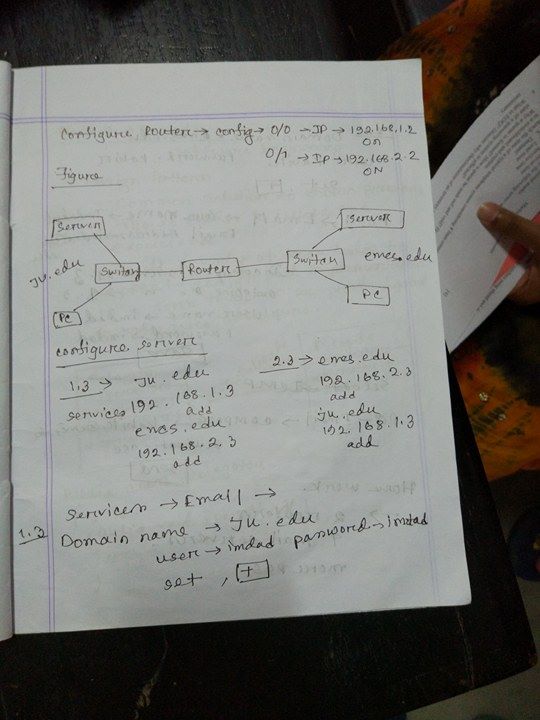 Configure Router → config → 0/0 → IP → 192.168.1.2
ON
0/1 → IP → 192.168.2.2
ON
Figure
Server
Server
Ju.edu
Switch
Router
Switch
emes.edu
PC
PC
configure server
1.3 → Ju.edu
services 192.168.1.3
add
emes.edu
192.168.2.3
add
2.3 → emes.edu
192.168.2.3
add
ju.edu
192.168.1.3
add
Services → Email →
1.3 Domain name → Ju.edu
user → imdad password → imdad
set , +